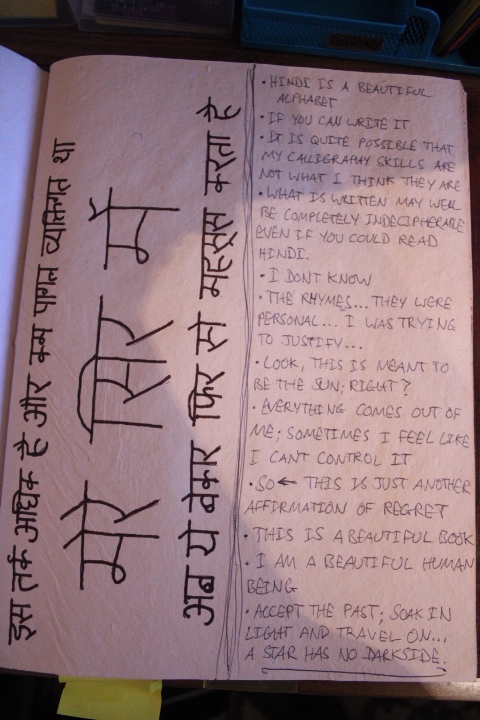 इस तर्क अधिक है और कम पागत व्यक्तिगत था
मेरे सिर में
अब ये बेकार फिर से महसूस करता है
• HINDI IS A BEAUTIFUL
ALPHABET
• IF YOU CAN WRITE IT
• IT IS QUITE POSSIBLE THAT
MY CALLIGRAPHY SKILLS ARE
NOT WHAT I THINK THEY ARE
• WHAT IS WRITTEN MAY WELL
BE COMPLETELY INDECIPHERABLE
EVEN IF YOU COULD READ
HINDI.
• I DONT KNOW
• THE RHYMES... THEY WERE
PERSONAL... I WAS TRYING
TO JUSTIFY...
• LOOK, THIS IS MEANT TO
BE THE SUN; RIGHT?
• EVERYTHING COMES OUT OF
ME; SOMETIMES I FEEL LIKE
I CANT CONTROL IT
• SO ← THIS IS JUST ANOTHER
AFFIRMATION OF REGRET
• THIS IS A BEAUTIFUL BOOK
• I AM A BEAUTIFUL HUMAN
BEING
• ACCEPT THE PAST; SOAK IN
LIGHT AND TRAVEL ON...
A STAR HAS NO DARKSIDE.